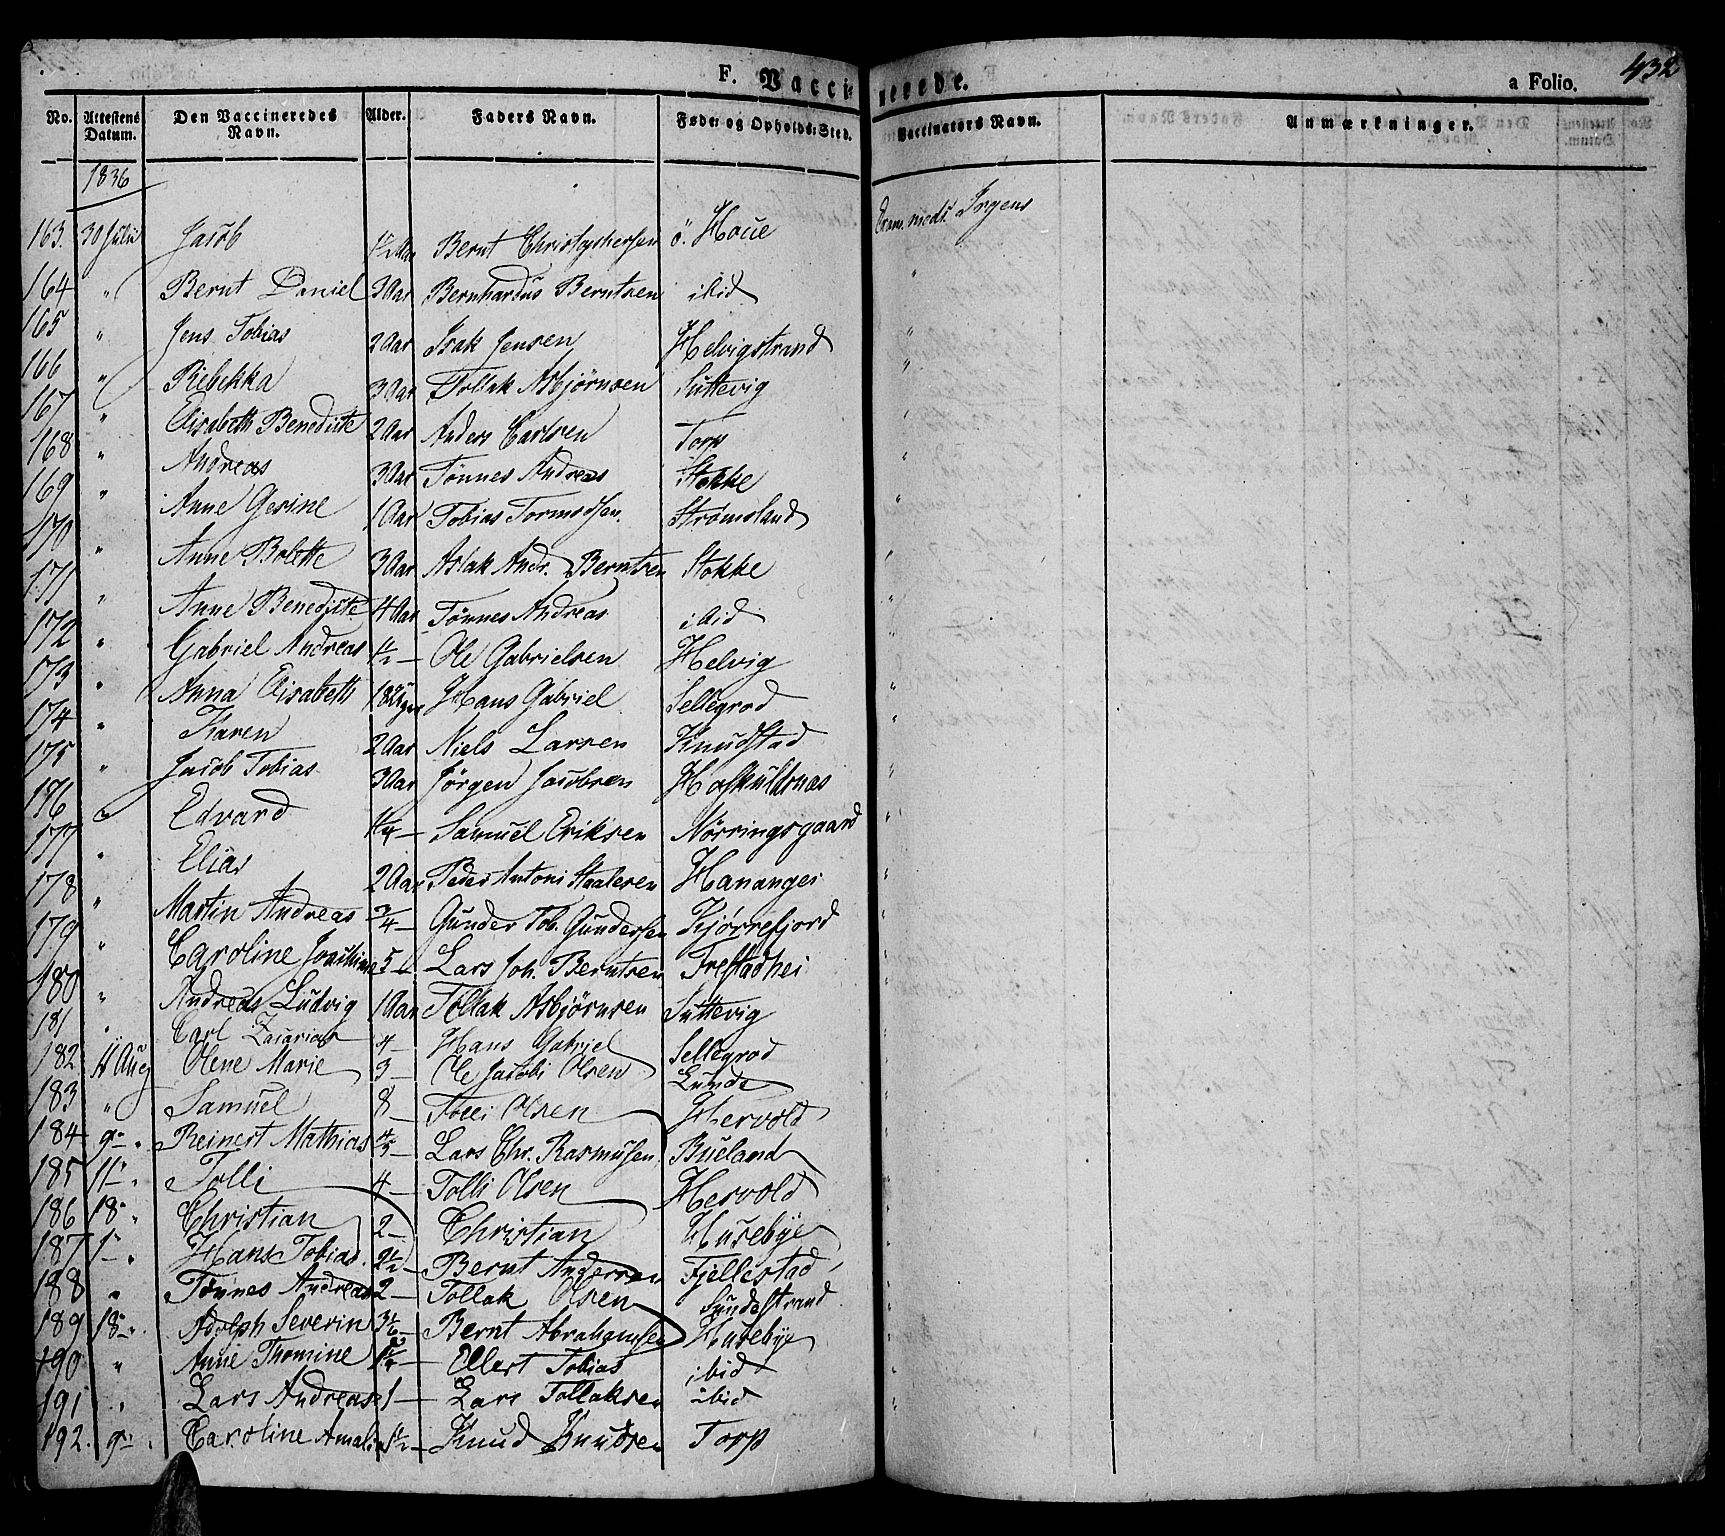 F. Vaccinerede. a Folio. 432
No. Attestens Datum. Den Vaccineredes Navn. Alder. Faders Navn. Føde- og Opholds-Sted. Vaccinators Navn. Anmærkninger.
1836
163. 30 Julii Jacob 1½ Aar Bernt Christophersen ö. Houe Exam. med. Irgens
164 " Bernt Daniel 3 Aar Bernhardus Berntsen ibid "
165 " Jens Tobias 2 Aar Isak Jensen Helvigstrand "
166 " Rebekka 3 Aar Tollak Asbjørnsen Suttevig "
167 " Elisabeth Benedicte 2 Aar Anders Carlsen Torp "
168 " Andreas 3 Aar Tønnes Andreas Stokke "
169 " Anne Gesine 1 Aar Tobias Tormodsen Strømsland "
170 " Anne Bolette 3 Aar Aslak Andr. Berntsen Stokke "
171 " Anne Benedicte 4 Aar Tønnes Andreas ibid "
172 " Gabriel Andreas 1½ — Ole Gabrielsen Helvig "
173 " Anna Elisabeth Hans Gabriel Sellegrod "
174 " Karen 2 Aar Niels Larsen Knudstad "
175 " Jacob Tobias 3 Aar Jørgen Jacobsen Hafskuldsnæs "
176 " Edvard 1¼ — Samuel Eriksen Nørringsgaard "
177 " Elias 2 Aar Peder Antoni Staalesen Hananger "
178 " Martin Andreas 3/4 — Gunder Tob. Gundersen Kjørrefjord "
179 " Caroline Joachime 5 — Lars Joh. Berntsen Frestadhei "
180 " Andreas Ludvig 1 Aar Tollak Asbjørnsen Suttevig "
181 " Carl Zacarias 4 — Hans Gabriel Sellegrod "
182 11 Aug Olene Marie 3 — Ole Jacobi Olsen Lunde
183 " Samuel 8 — Tolli Olsen Hervold
184 9 — " Reinert Mathias — Lars Chr. Rasmussen Bueland
185 11 — " Tolli 4 — Tolli Olsen Hervold
186 18 " Christian 2 — Christian Husebye
187 1 — " Hans Tobias 2½ — Bernt Andersen Fjellestad
188 " Tønnes Andreas 2 — Tollak Olsen Sundestrand
189 18 — " Adolph Severin — Bernt Abrahamsen Husebye
190 " Anne Thomine — Ellert Tobias ibid
191 " Lars Andreas 1 — Lars Tollaksen ibid
192. 9 — " Caroline Amalie 1½ — Knud Knudsen Torp